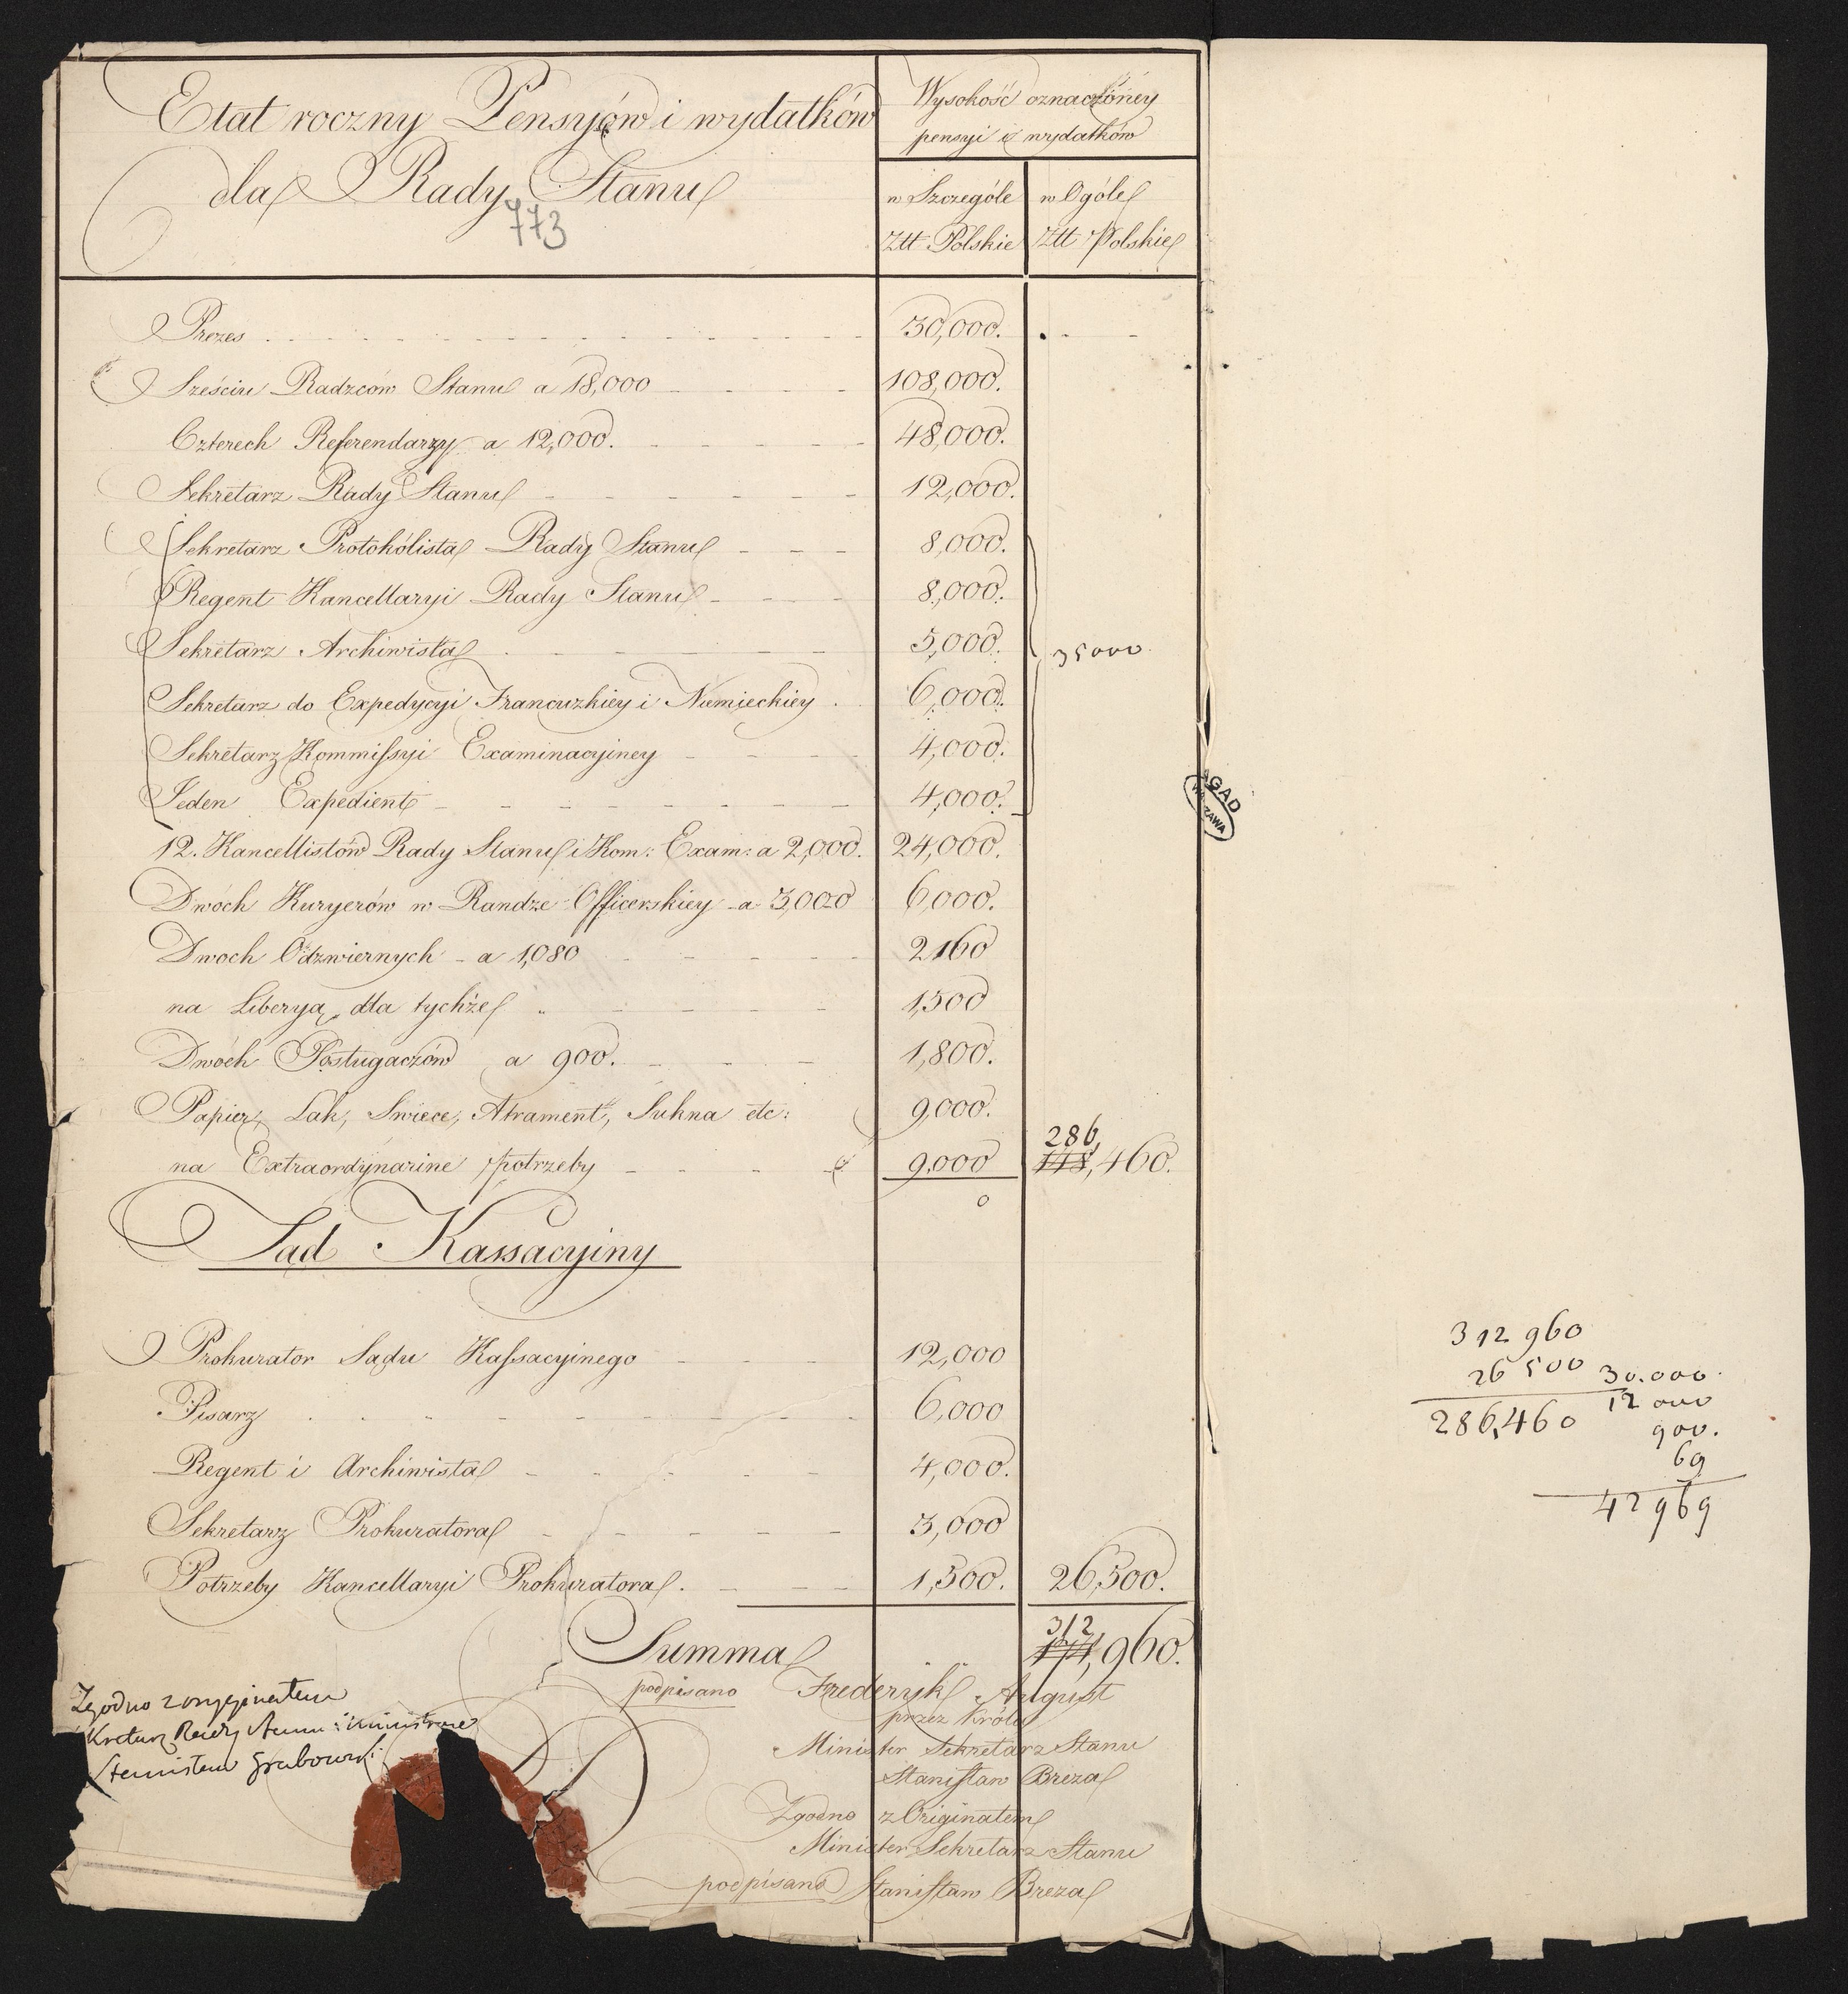 Etat roczny Pensyów i wydatków
dla Rady Stanu
773
Wysokość oznaczóney
pensyi i wydatków
w Szczególe w Ogóle
Złł Polskie Złł Polskie
Prezes 30,000.
Sześciu Radzców Stanu a 18,000 108,000.
Czterech Referendarzy a 12,000. 48,000.
Sekretarz Rady Stanu 12,000.
Sekretarz Protokólista Rady Stanu 8,000.
Regent Kancellaryi Rady Stanu 8,000.
Sekretarz Archiwista 5,000. 35000
Sekretarz do Expedycyi Francuzkiey i Niemieckiey 6,000.
Sekretarz Kommissyi Examinacyiney 4,000.
Jeden Expedient 4,000.
12. Kancellistów Rady Stanu i Kom: Exam: a 2,000. 24,000.
Dwóch Kuryerów w Randze Officerskiey a 3,000 6,000.
Dwoch Odzwiernych a 1,080 2160
na Liberyą dla tychże 1,500
Dwóch Posługaczów a 900. 1,800.
Papier, Lak, Swiece, Atrament, Sukna etc: 9,000.
286,
na Extraordynarine potrzeby 9,000 148,460.
0
Sąd Kassacyiny
Prokurator Sądu Kassacyinego 12,000
Pisarz 6,000
Regent i Archiwista 4,000.
Sekretarz Prokuratora 3,000
Potrzeby Kancellaryi Prokuratora. 1,500. 26,500.
312
Summa 174,960.
podpisano Frederyk August
przez Króla
Minister Sekretarz Stanu
Stanisław Breza
Zgodno z Originałem
Minister Sekretarz Stanu
podpisano Stanisław Breza
Zgodno z oryginałem
Kretarz Rady Stanu i ministrow
Stanisław Grabowski
AGAD
WARSZAWA
312 960
26 500
286,460
30.000.
12 000
900.
69
42 969